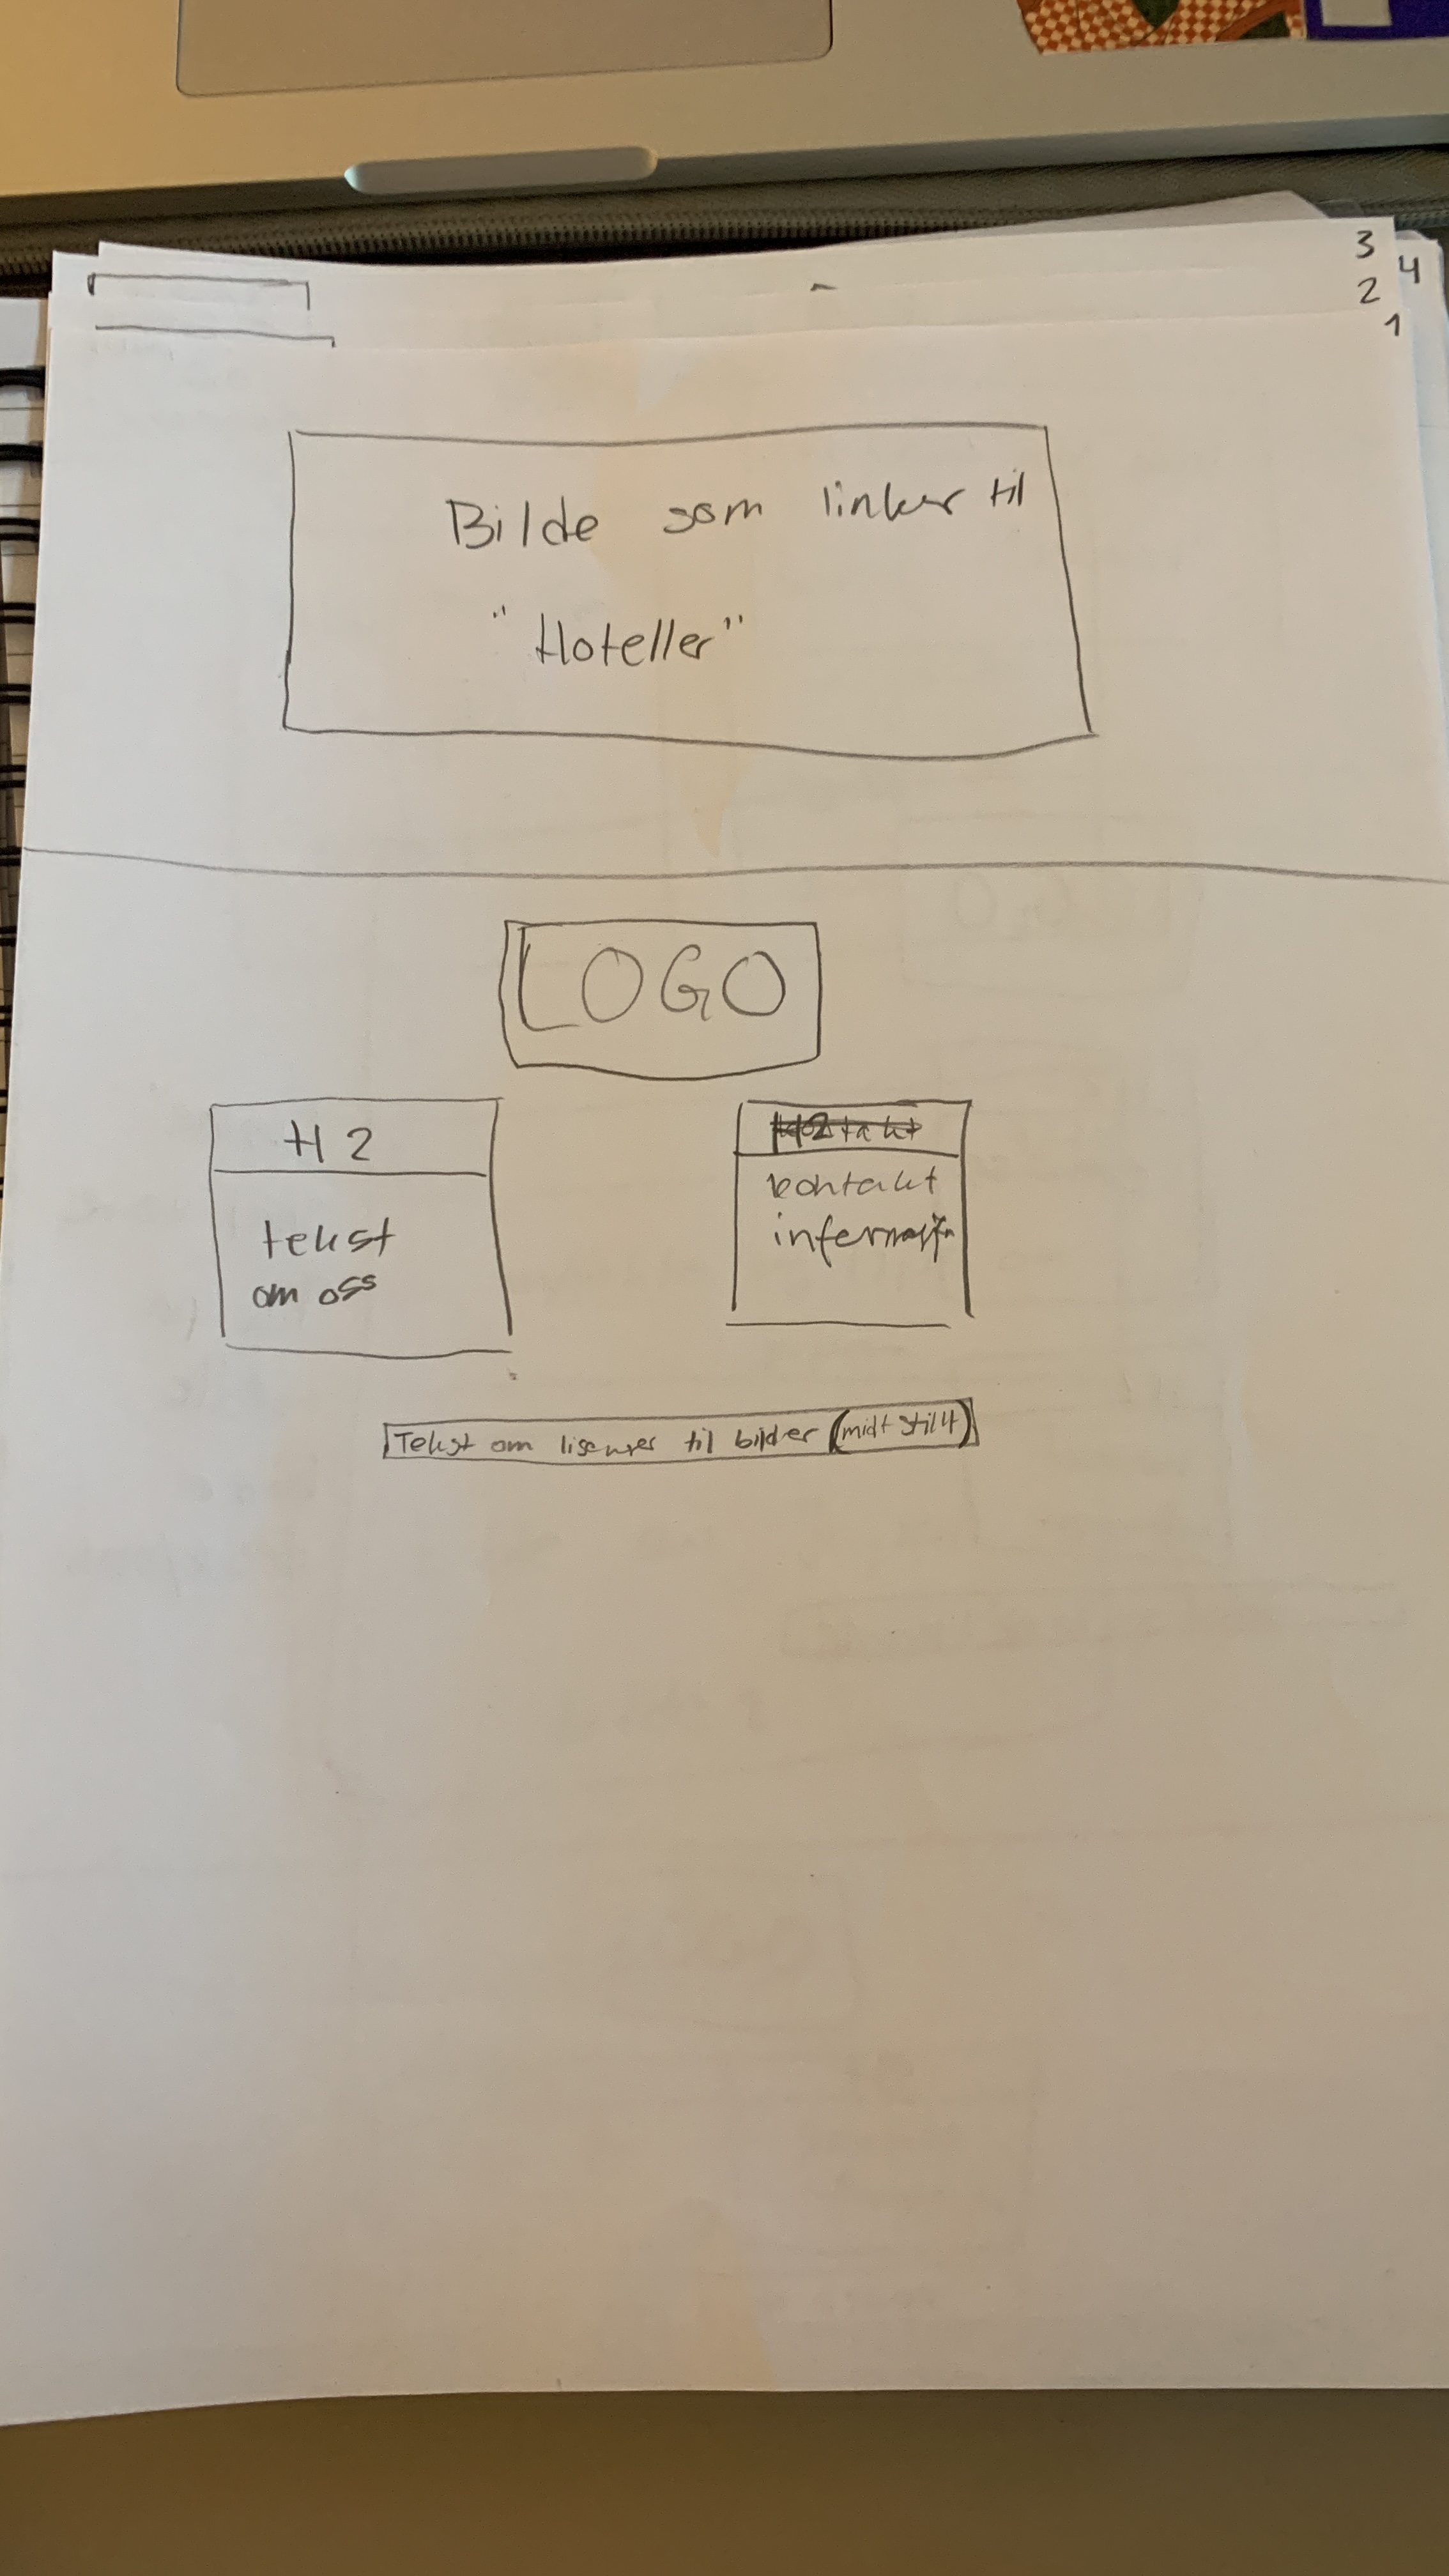 3
4
2
1
Bilde som linker til
"Hoteller"
LOGO
H2
tekst
om oss
kontakt
informasjon
Tekst om lisenser til bilder (midt stilt)